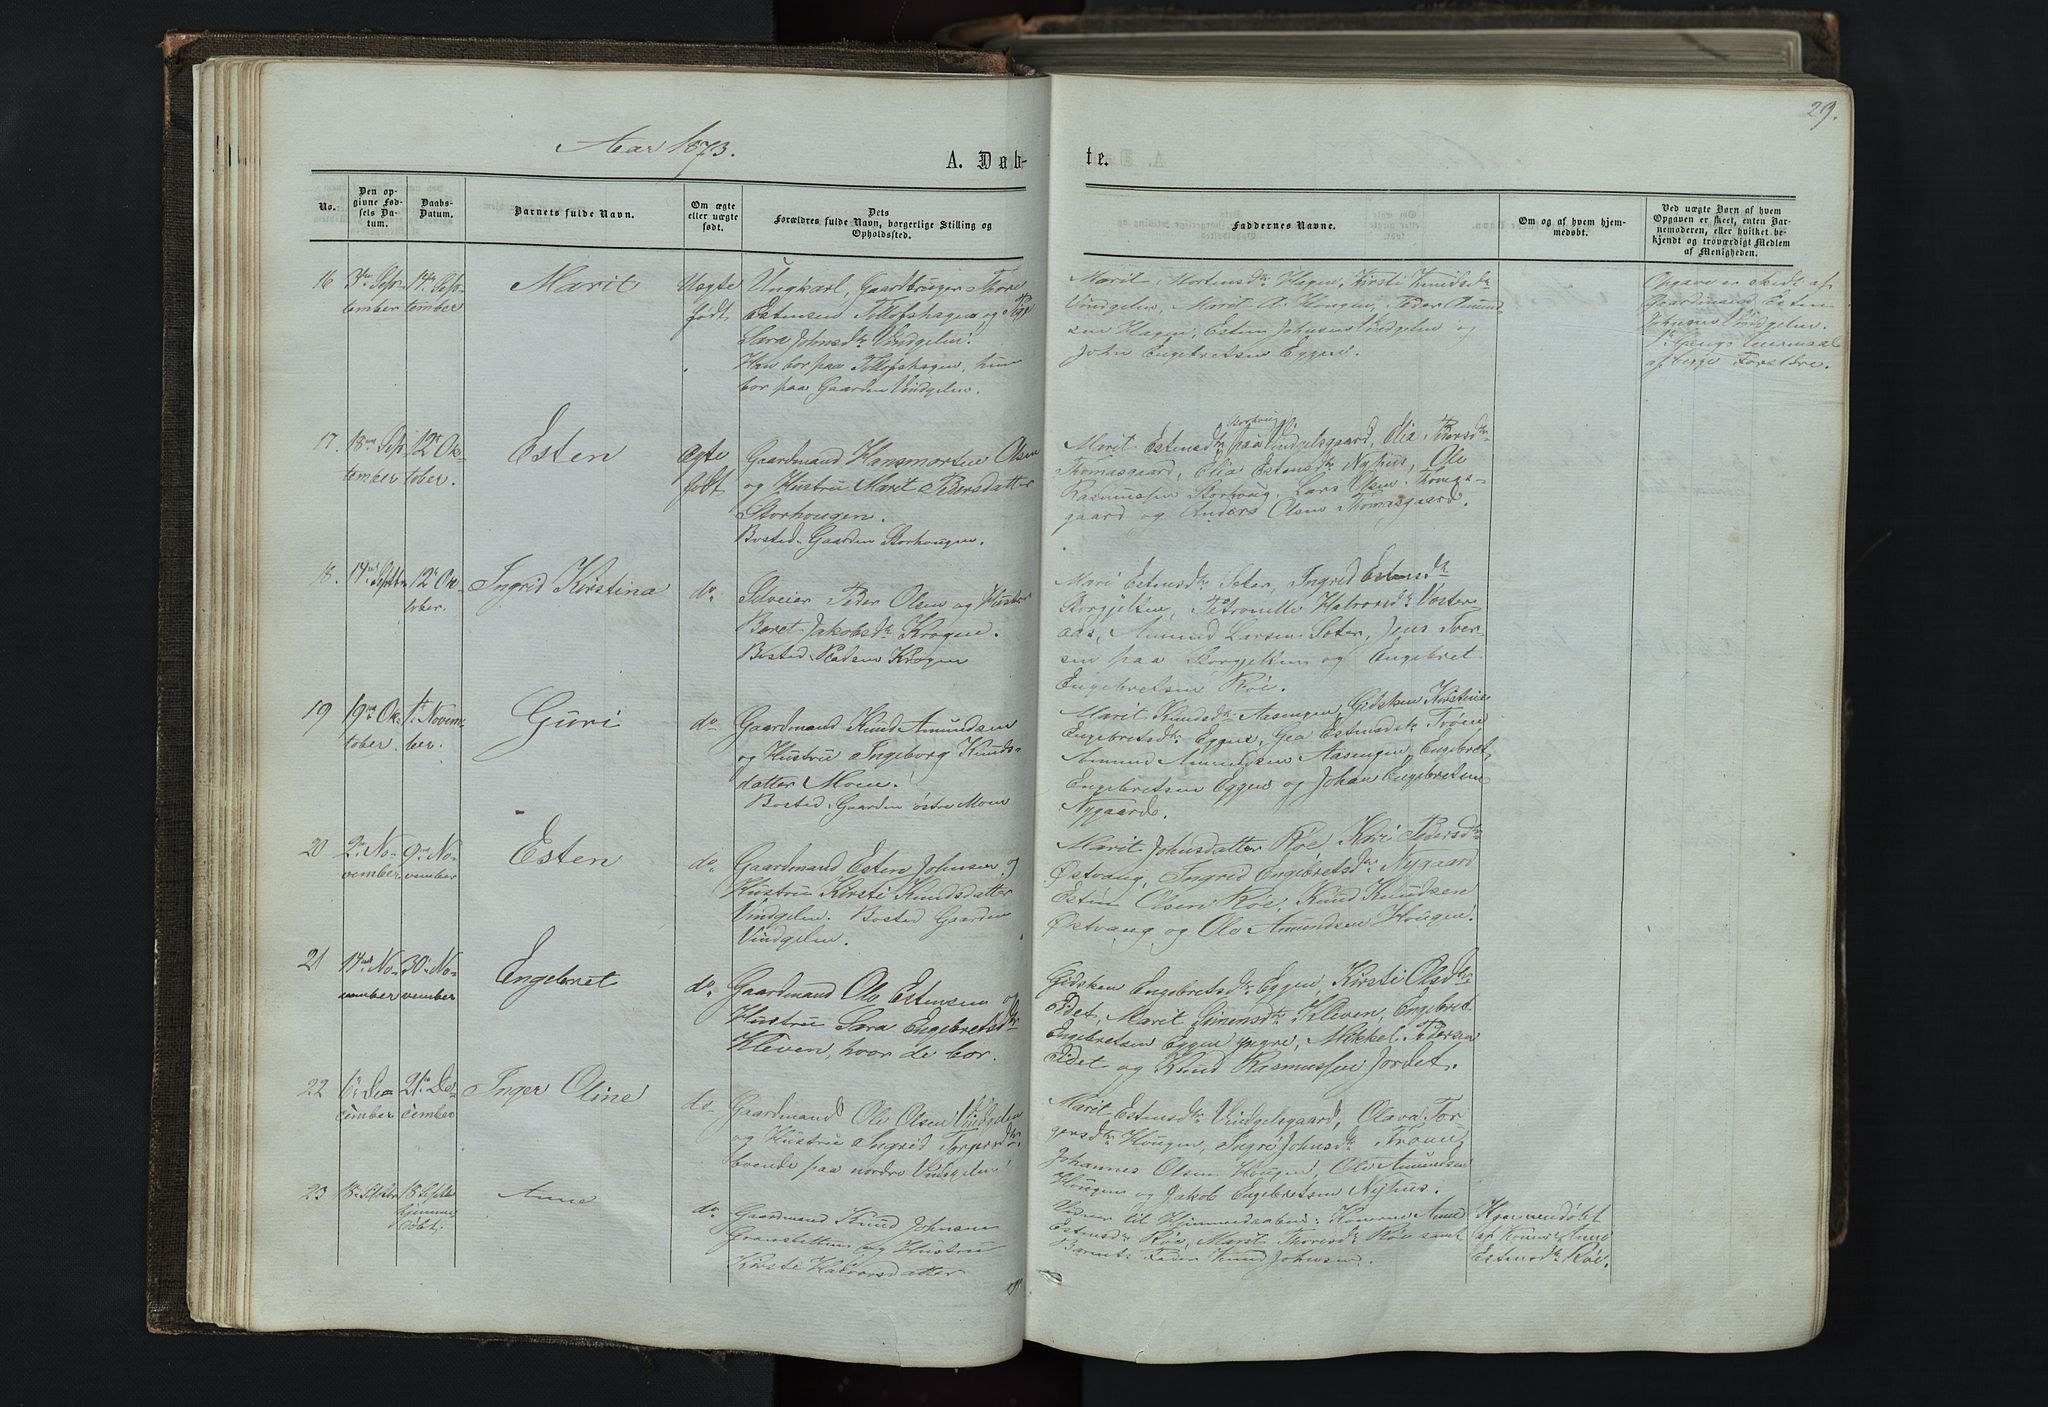 29.
Aar 1873.
A. Døb-
te.
No.
Den op-
givne Fød-
sels Da-
tum.
Daabs-
Datum.
Barnets fulde Navn.
Om ægte
eller uægte
født.
Dets
Forældres fulde Navn, borgerlige Stilling og
Opholdssted.
Faddernes Navne.
Om og af hvem hjem-
medøbt.
Ved uægte Børn af hvem
Opgaven er skeet, enten Bar-
nemoderen, eller hvilket be-
kjendt og troværdigt Medlem
af Menigheden.
16
Sep-
tember
14de Sep-
tember
Marit
Uægte
født
Ungkarl, Gaardbruger Thore
Estensen Tollofshagen og Pige
Sara Johnsdtr Vindgelen.
Han bor paa Tollofshagen, hun
bor paa Gaarden Vindgelen.
Marit Mortensdtr Hagen, Kirsti Knudsdtr
Vindgelen, Marit A. Hougen, Peder Amund-
sen Hagen, Esten Johnsen Vindgelen og
John Engebretsen Eggen.
Opgave er skedt af
Gaardmand Esten
Johnsen Vindgelen.
af begge Forældre.
17.
18de Sep-
tember
12te Ok-
tober.
Esten
Ægte
født
Gaardmand Hansmorten Olsen
og Hustru Marit Pedersdatter
Storhougen.
Bosted Gaarden Storhougen.
Storhoug
Marit Estensdtr paa Vindgelsgaard, Elia Pedersdtr
Thomasgaard, Elia Estensdtr Nyhus, Ole
Rasmussen Storhoug, Lars Olsen Thomas-
gaard og Anders Olsen Thomasgaard.
18.
17de Septbr
12te Ok-
tober.
Ingrid Kirstina
do.
Selveier Peder Olsen og Hustru
Beret Jakobsdtr Krogen.
Bosted Pladsen Krogen
Mari Estensdtr Sæter, Ingrid Estensdtr
Storgjelten, Petronelle Halvorsdtr Vaster-
aas, Amund Larsen Sæter, Jens Iver-
sen paa Storgjelten og Engebret
Engebretsen Røe.
19
19de Ok-
tober
1ste Novem-
ber.
Guri
do.
Gaardmand Knud Amundsen
og Hustru Ingeborg Knuds-
datter Moen.
Bosted Gaarden østre Moen
Marit Knudsdtr Aasengen, Gidsken Kirstine
Engebretsdtr Eggen, Gea Estensdtr Trøen
Amund Amundsen Aasengen, Engebret
Engebretsen Eggen og Johan Engebretsen
Nygaard.
20
2den No-
vember
9de No-
vember
Esten
do.
Gaardmand Esten Johnsen og
Hustru Kirsti Knudsdatter
Vindgelen. Bosted Gaarden
Vindgelen.
Marit Johnsdatter Røe, Kari Pedersdtr
Østvang, Ingrid Engebretsdtr Nygaard
Esten Olsen Røe, Knud Knudsen
Østvang og Ole Amundsen Hougen.
21
17de No-
vember
30te No-
vember
Engebret
do.
Gaardmand Ole Estensen og
Hustru Sara Engebretsdtr
Kleven, hvor de bor.
Gidsken Engebretsdtr Eggen, Kirsti Olsdtr
Eidet, Marit Simensdtr Kleven, Engebret
Engebretsen Eggen yngre, Mikkel Pedersen
Eidet og Knud Rasmussen Jordet.
22
6te De-
cember
21de De-
cember
Inger Oline
do.
Gaardmand Ole Olsen Vindgelen
og Hustru Ingrid Torgersdtr
boende paa nordre Vindgelen
Marit Estensdtr Vindgelsgaard, Olava Tor-
gersdtr Hougen, Ingri Johnsdtr Trøen
Johannes Olsen Hougen, Ole Amundsen
Hougen og Jakob Engebretsen Nyhus.
23
18de Septbr
18 Septbr
hjemme-
døbt.
Anne
do.
Gaardmand Knud Johnsen
Granslettun og Hustru
Kirsti Halvorsdatter
Vidner til Hjemmedaaben: Konerne Anne
Estensdtr Røe, Marit Thoresdtr Røe samt
Barnets Fader Knud Johnsen.
Hjemmedøbt
af Kone Anne
Estensdtr Røe.